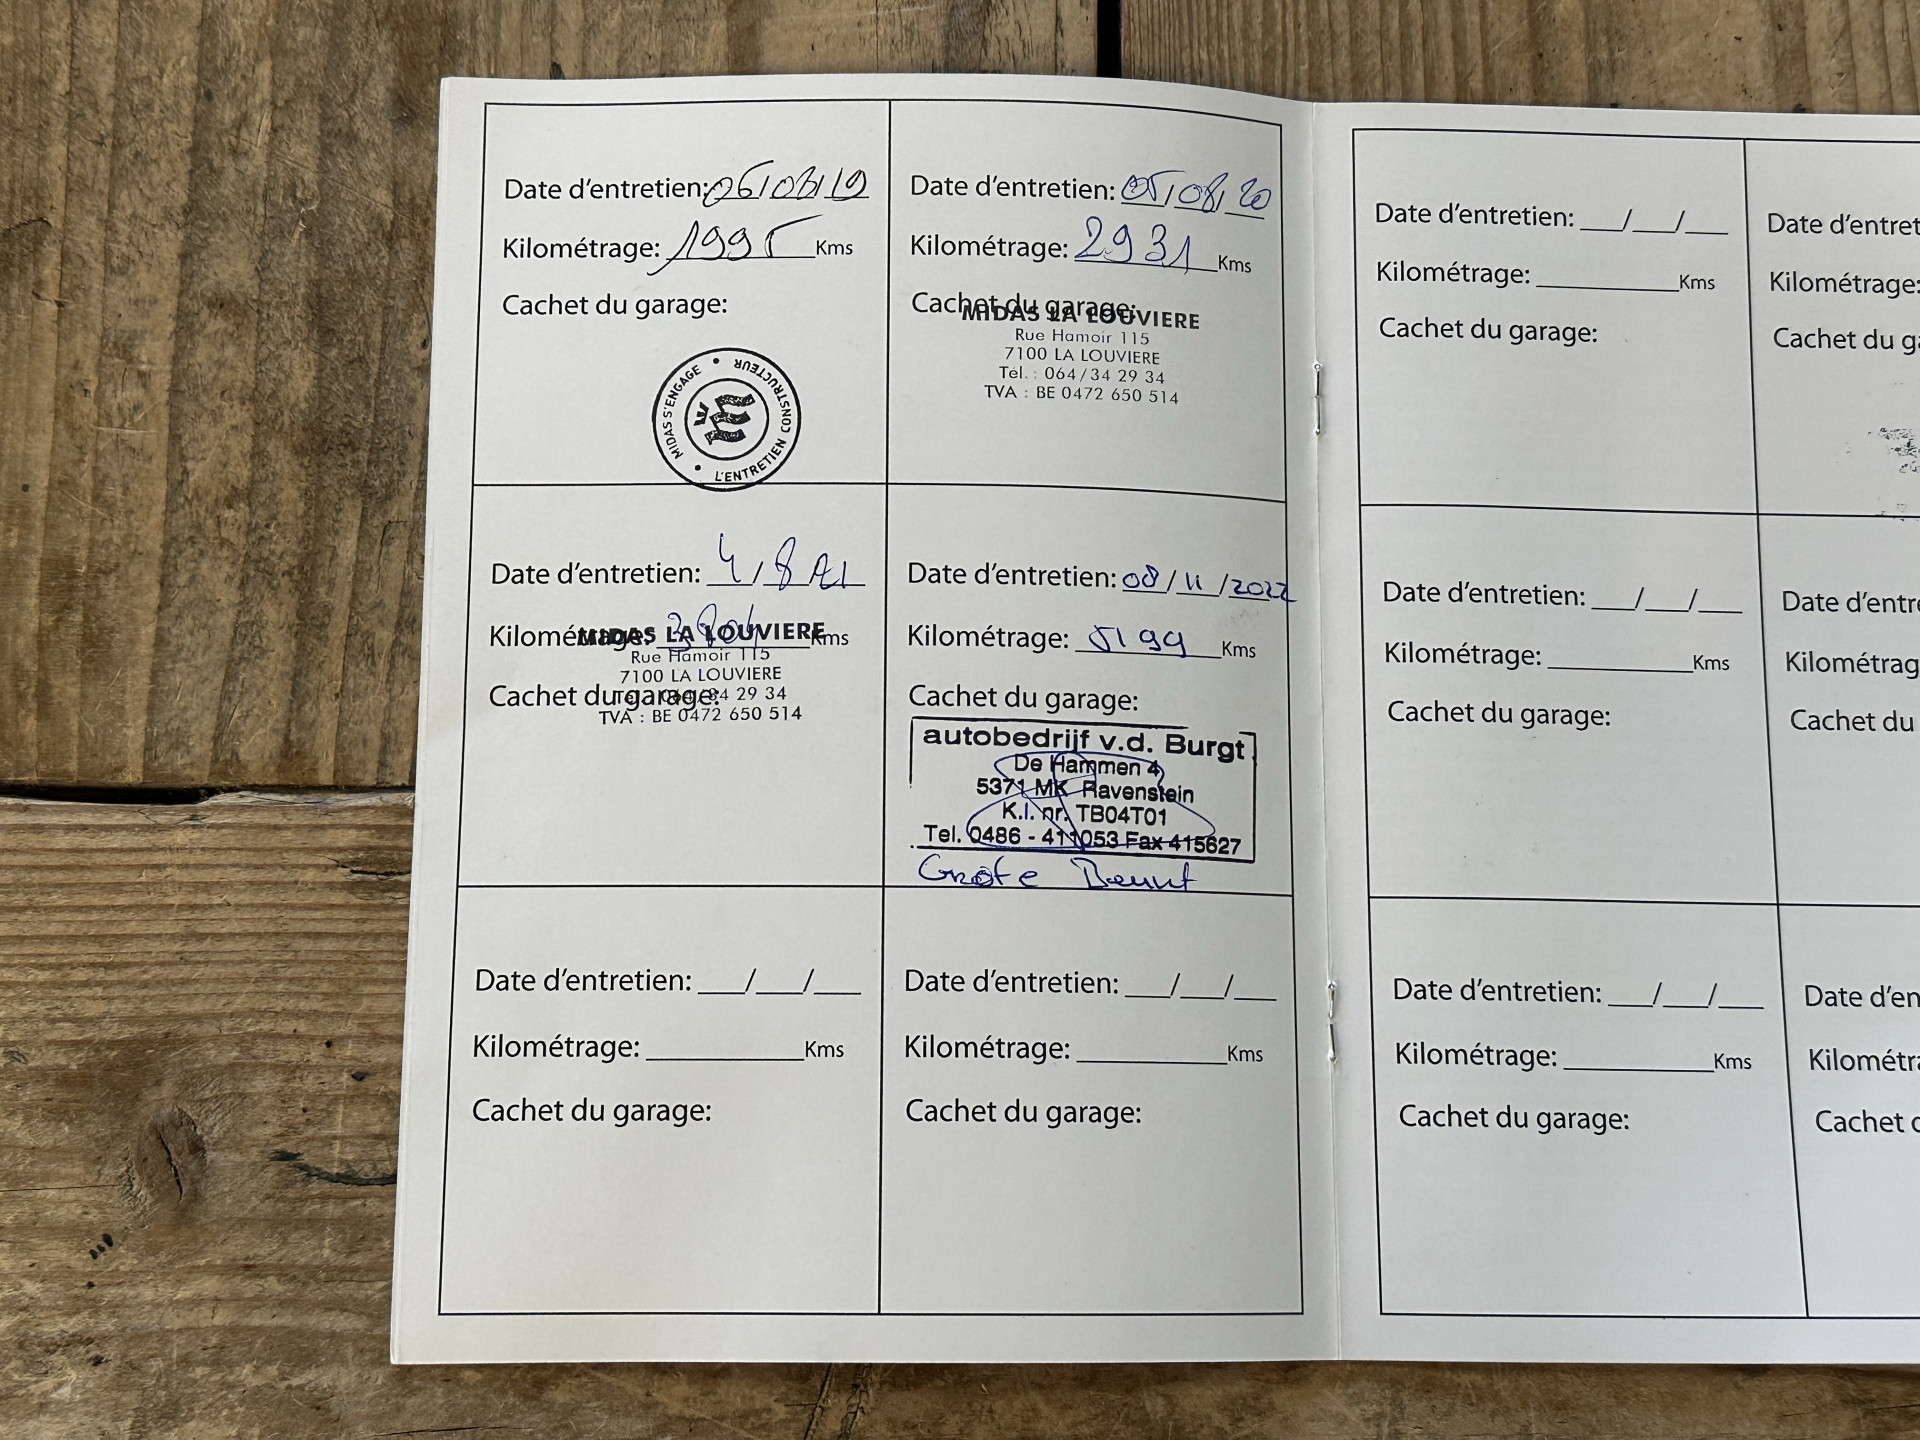 Date d'entretien: 06/08/19
Kilométrage: 1995 Kms
Cachet du garage:
MIDAS S'ENGAGE • L'ENTRETIEN CONSTRUCTEUR •
Date d'entretien: 05/08/20
Kilométrage: 2931 Kms
Cachet du garage:
MIDAS LA LOUVIERE
Rue Hamoir 115
7100 LA LOUVIERE
Tél. : 064/34 29 34
TVA : BE 0472 650 514
Date d'entretien: 4/8/21
Kilométrage: Kms
MIDAS LA LOUVIERE
Rue Hamoir 115
7100 LA LOUVIERE
Cachet du garage:
Tél. : 064/34 29 34
TVA : BE 0472 650 514
Date d'entretien: 08/11/2022
Kilométrage: 5199 Kms
Cachet du garage:
autobedrijf v.d. Burgt
De Hammen 4
5371 MK Ravenstein
K.I. nr. TB04T01
Tel. 0486 - 411053 Fax 415627
Grote Beurt
Date d'entretien: __/__/__
Kilométrage: ______Kms
Cachet du garage:
Date d'entretien: __/__/__
Kilométrage: ______Kms
Cachet du garage:
Date d'entretien: __/__/__
Kilométrage: ______Kms
Cachet du garage:
Date d'entret
Kilométrage:
Cachet du ga
Date d'entretien: __/__/__
Kilométrage: ______Kms
Cachet du garage:
Date d'entre
Kilométrag
Cachet du
Date d'entretien: __/__/__
Kilométrage: ______Kms
Cachet du garage:
Date d'en
Kilométra
Cachet d